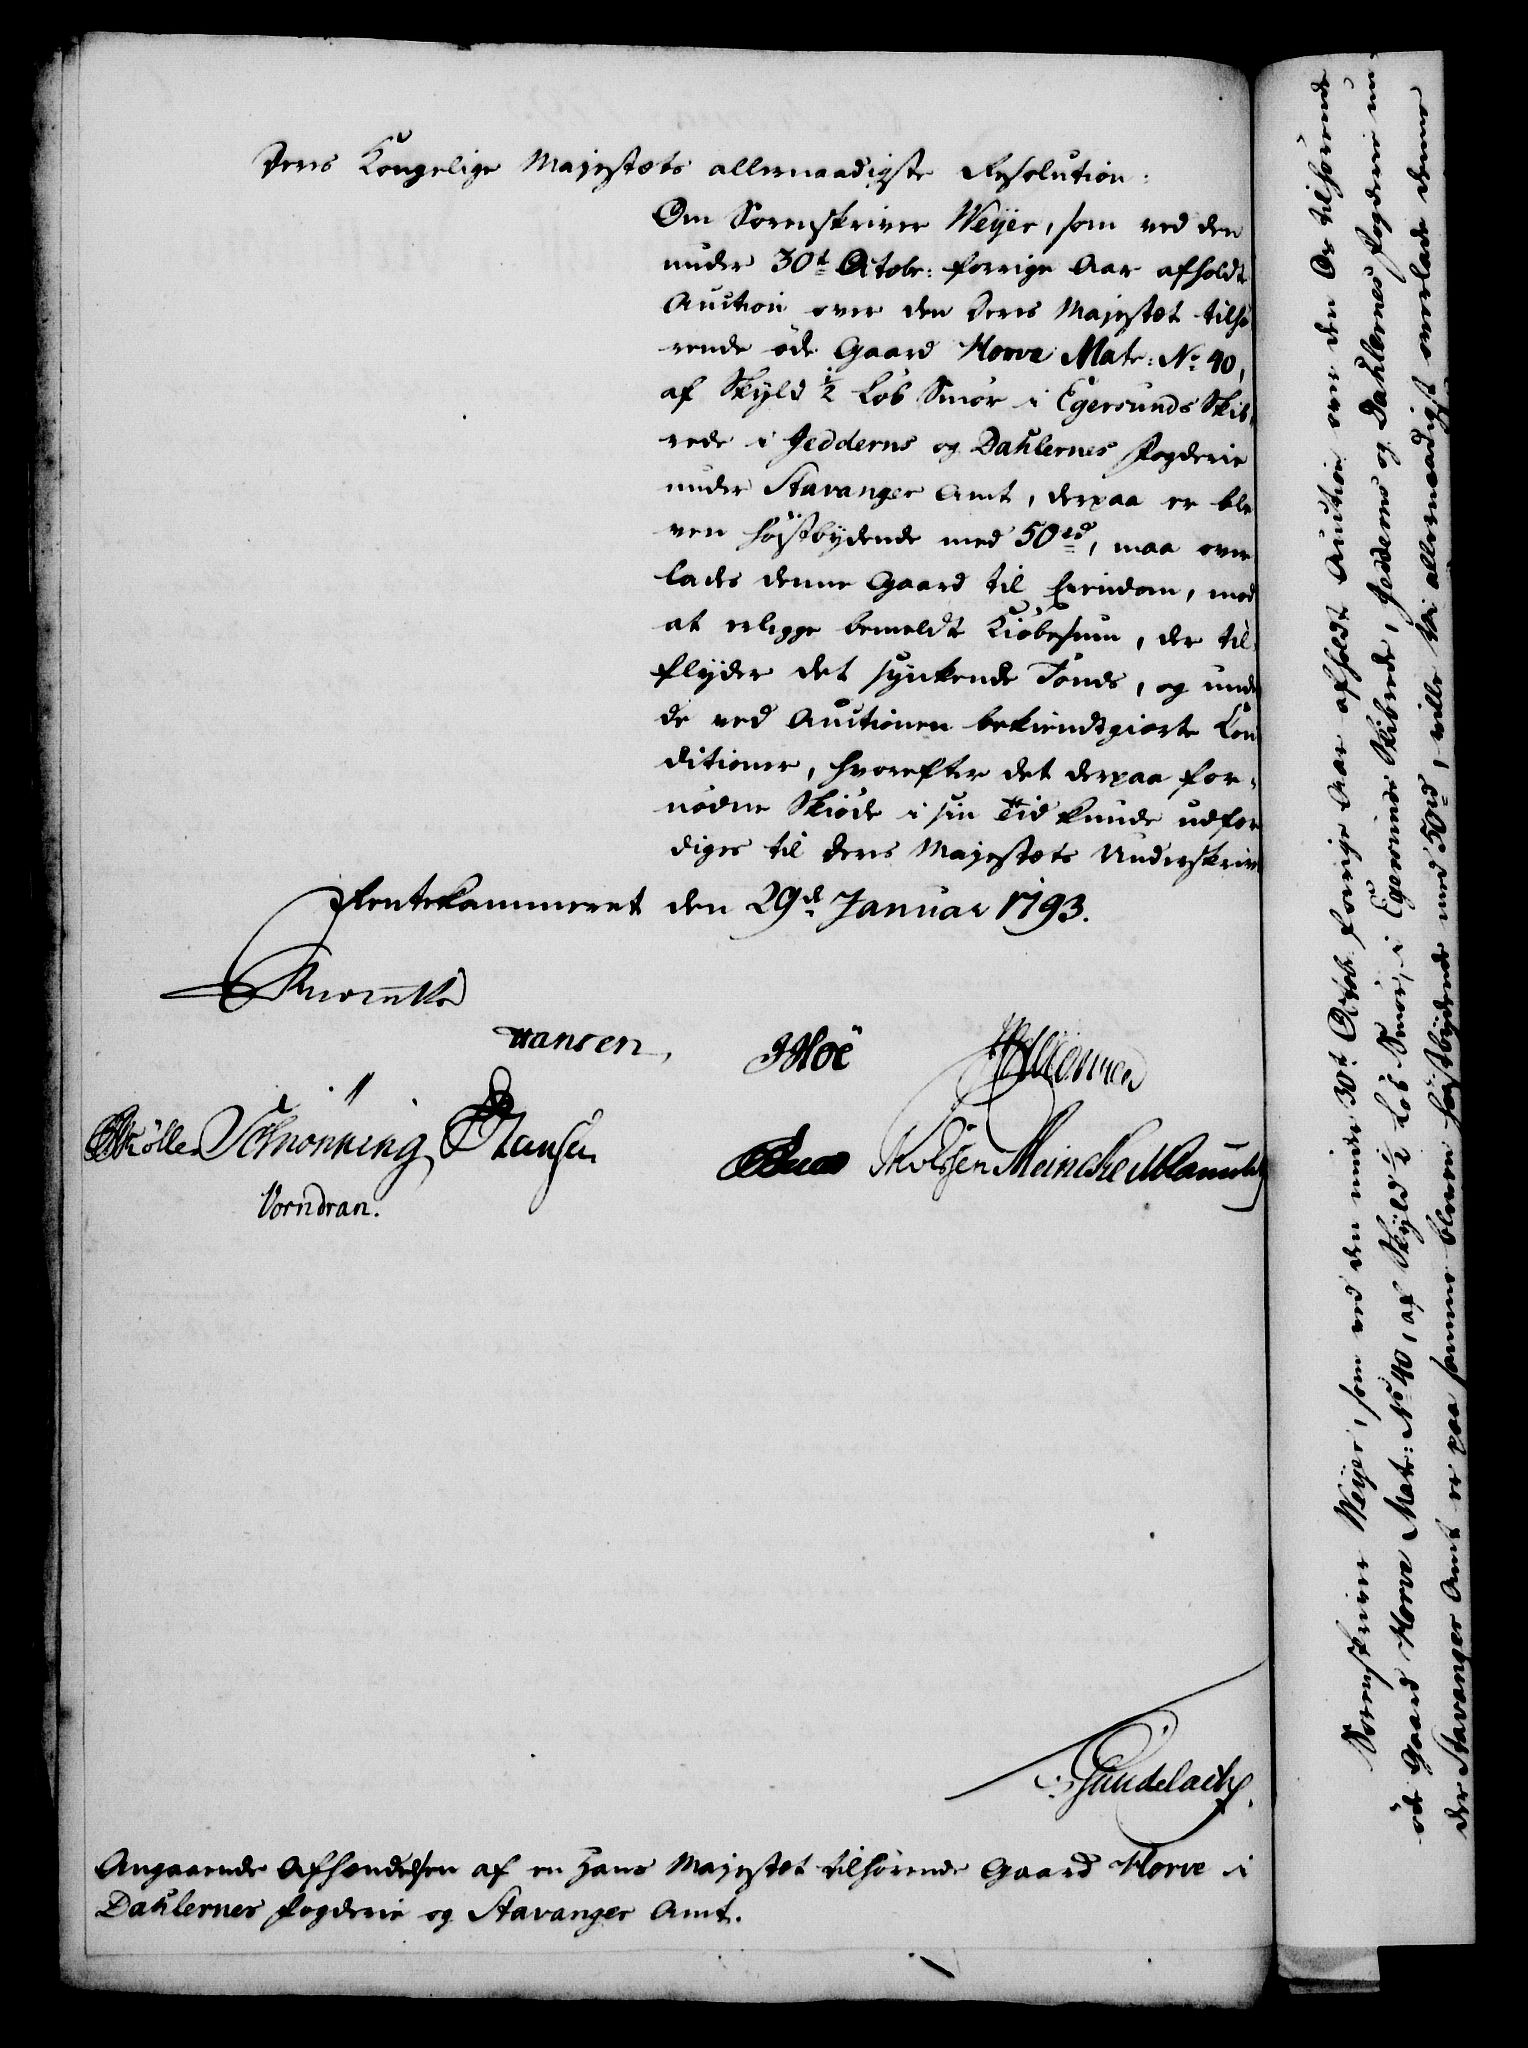 Deres Kongelige Majestæts allernaadigste Resolution:
Om Sorenskriver Weyer, som ved den
under 30t Octobr: forrige Aar afholdt
Auction over den Deres Majestæt tilhø
rende øde Gaard Horve Matr: No 40,
af Skyld 1/2 Løb Smør i Egersunds Skib
rede i Jedderns og Dahlernes Fogderie
under Stavanger Amt, derpaa er ble
ven høistbydende med 50 rd, maa over
lades denne Gaard til Eiendom, mod
at erlegge bemeldt Kiøbesum, der til
flyder det synkende Fonds, og under
de ved Auctionen bekiendtgiorte Con
ditioner, hvorefter det derpaa for-
nødne Skiøde i sin Tid kunde udfær
diges til Deres Majestæts Underskrivt
Rentekammeret den 29de Januar 1793.
Hansen, Hoë
Møller Schiönning Hansen Meincke
Vorndran.
Gundelach.
Angaaende Afhændelsen af en Hans Majestæt tilhørende Gaard Horve i
Dahlernes Fogderie og Stavanger Amt.
Sorenskriver Weyer, som ved den under 30t Octob: forrige Aar afholdt Auction over den Os tilhørende
øde Gaard Horve Matr: No 40, af Skyld 1/2 Løb Smør, i Egersunds Skibrede, Jedderns og Dahlernes Fogderie un-
der Stavanger Amt er paa samme bleven høistbydende med 50 rd, ville Vi allernaadigst overlade denne